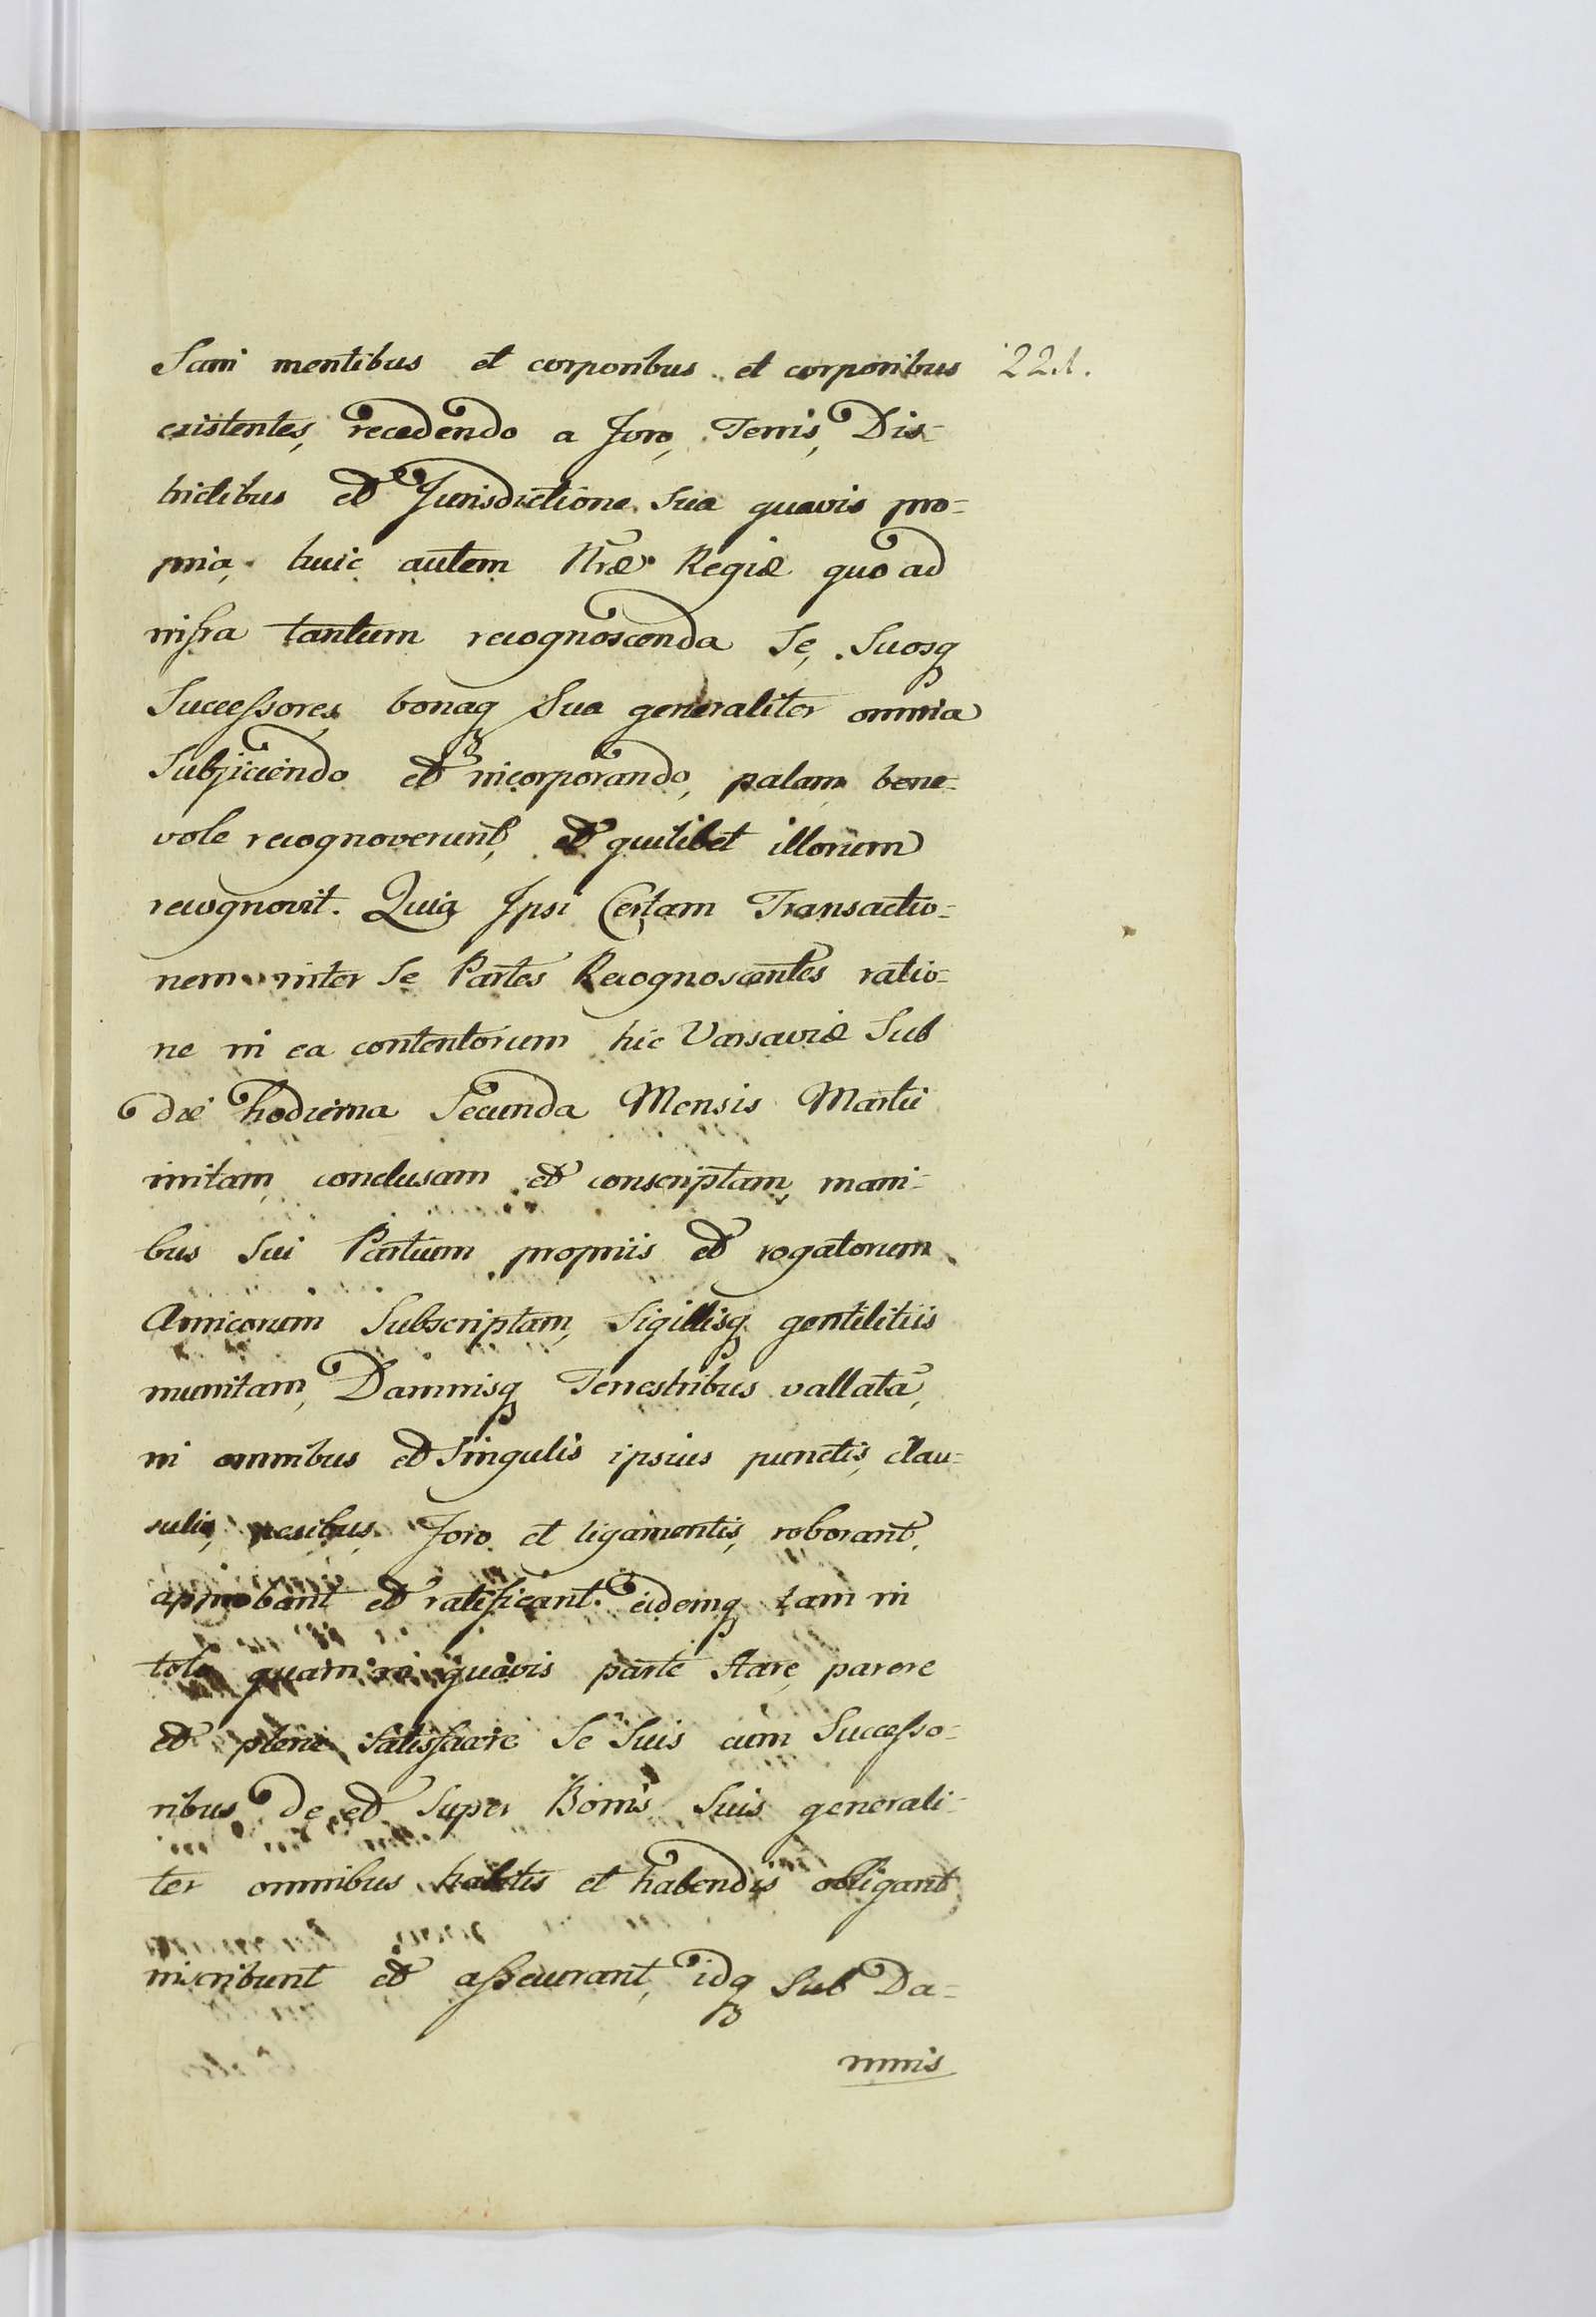 Sani mentibus et corporibus et corporibus 221.
existentes, recedendo a Foro, Terris, Dis-
trictibus et Jurisdictione Sua quavis pro-
pria, huic autem Nræ Regiæ quo ad
infra tantum recognoscenda Se, Suosq
Successores bonaq Sua generaliter omnia
Subjiciendo et incorporando, palam bene-
vole recognoverunt, et quilibet illorum
recognovit. Quia Ipsi Certam Transactio-
nem inter Se Partes Recognoscentes ratio-
ne in ea contentorum hic Varsaviæ Sub
die hodierna Secunda Mensis Martii
initam, conclusam et conscriptam, mani-
bus Sui Partium propriis et rogatorum
Amicorum Subscriptam, Sigillisq gentilitiis
munitam, Damnisq Terrestribus vallatã,
in omnibus et Singulis ipsius punctis, clau-
sulis, nexibus, Foro et ligamentis, roborant,
approbant et ratificant. eidemq tam in
toto quam in quavis parte Stare, parere
et plene Satisfacere Se Suis cum Successo-
ribus De et Super Bonis Suis generali-
ter omnibus habitis et habendis obligant
inscribunt et assecurant, idq Sub Da-
mnis